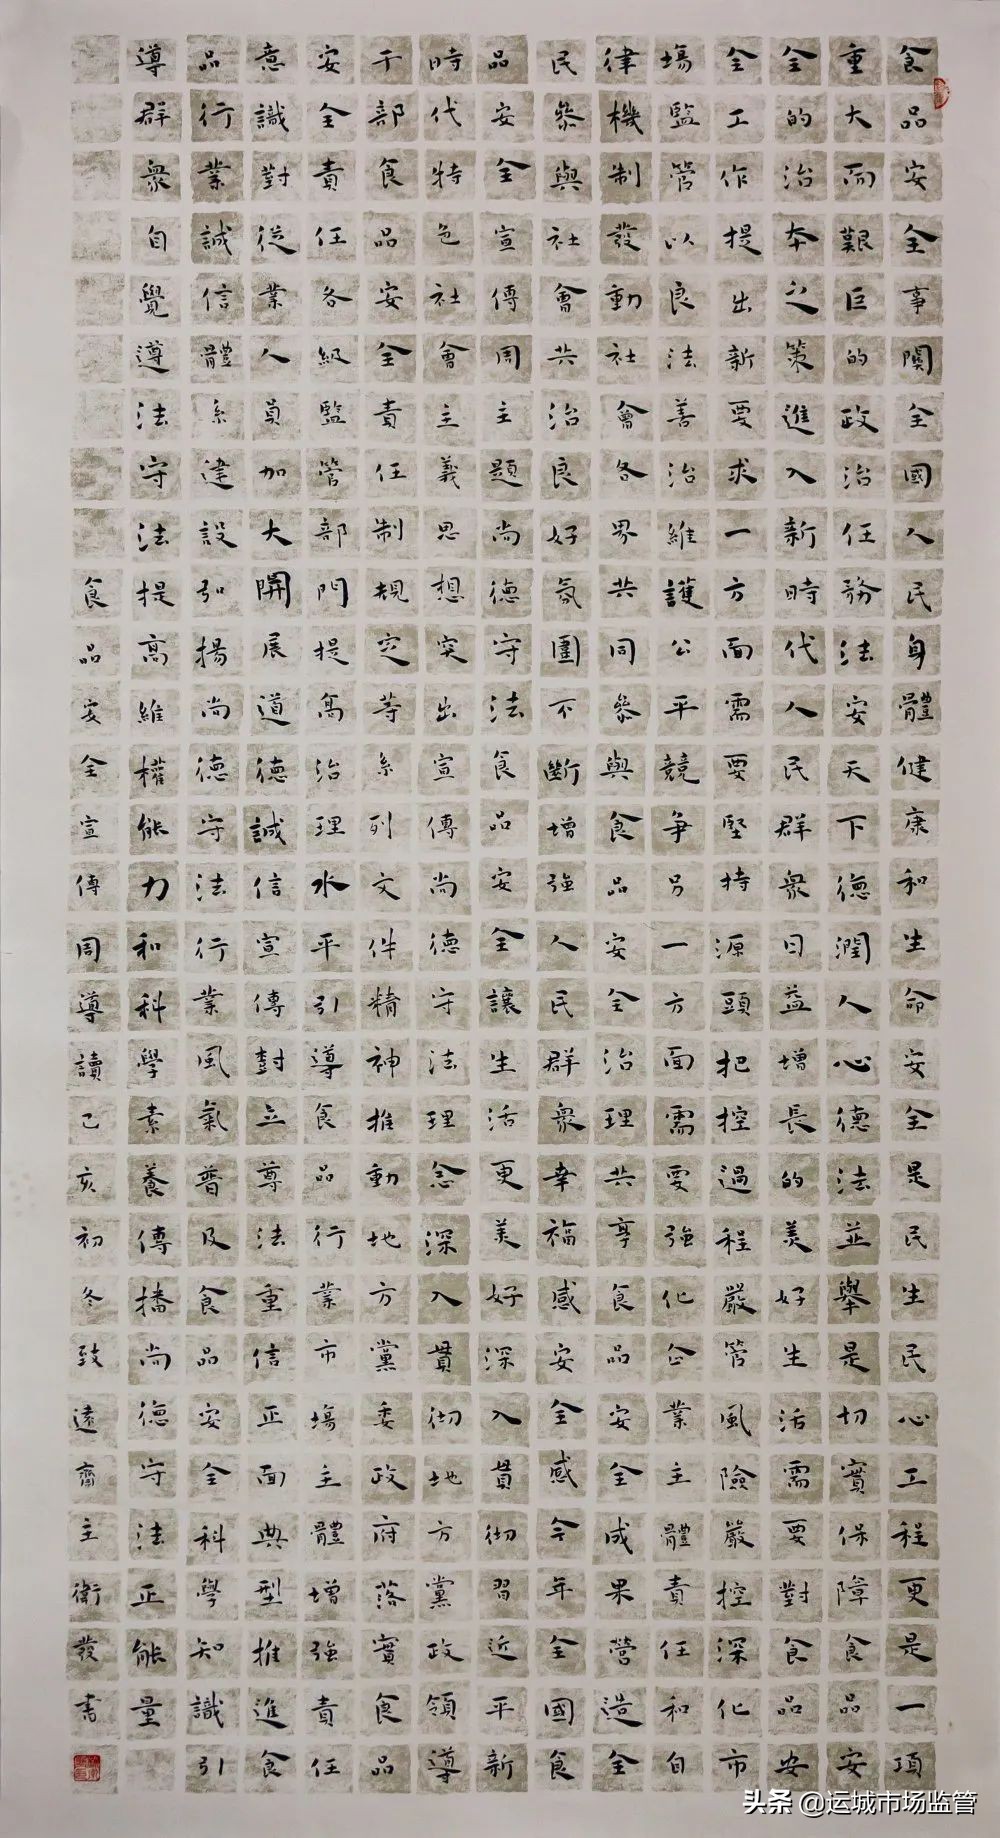 食品安全事關全國人民身體健康和生命安全是民生民心工程更是一項
重大而艱巨的政治任務法安天下德潤人心德法並舉是切實保障食品安
全的治本之策進入新時代人民群衆日益增長的美好生活需要對食品安
全工作提出新要求一方面需要堅持源頭把控過程嚴管風險嚴控深化市
場監管以良法善治維護公平競爭另一方面需要強化企業主體責任和自
律機制發動社會各界共同參與食品安全治理共享食品安全成果營造全
民參與社會共治良好氛圍不斷增強人民群衆幸福感安全感今年全國食
品安全宣傳周主題尚德守法食品安全讓生活更美好深入貫彻習近平新
時代特色社會主義思想突出宣傳尚德守法理念深入貫彻地方黨政領導
干部食品安全責任制規定等系列文件精神推動地方黨委政府落實食品
安全責任各級監管部門提高治理水平引導食品行業市場主體增強責任
意識對從業人員加大開展道德誠信宣傳對立尊法重信正面典型推進食
品行業誠信體系建設引揚尚德守法行業風氣普及食品安全科學知識引
導群衆自覺遵法守法提高維權能力和科學素養傳播尚德守法正能量
食品安全宣傳周導讀己亥初冬致遠齋主衛發書
头条 @运城市场监管